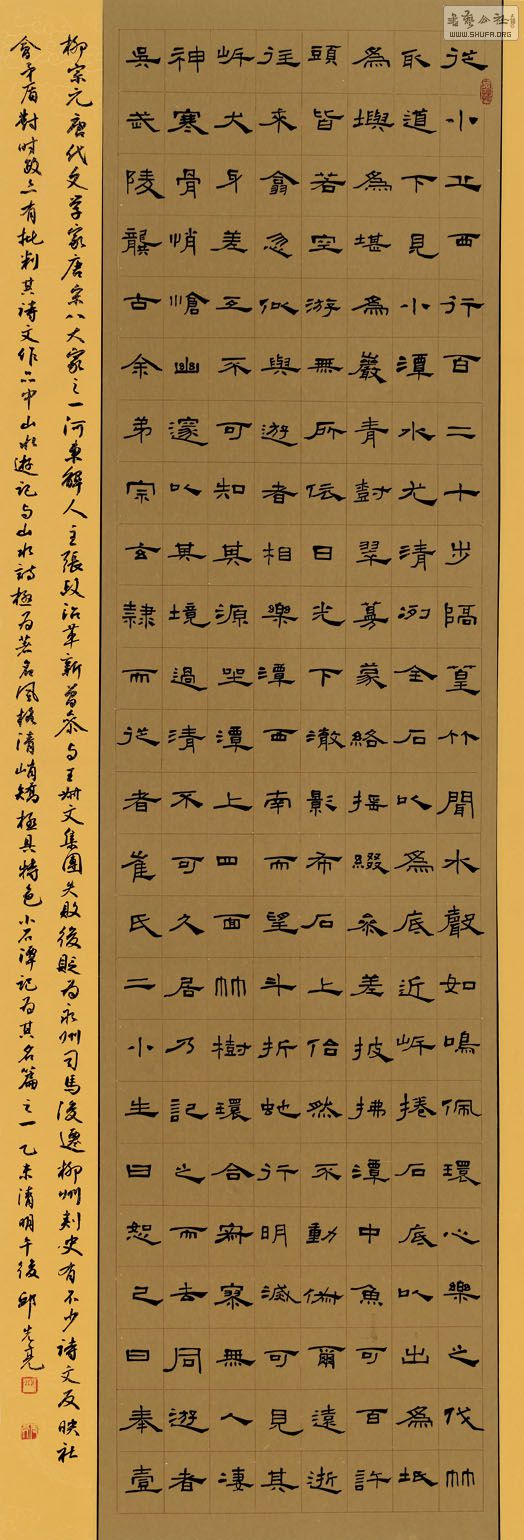 從小丘西行百二十步隔篁竹聞水聲如鳴佩環心樂之伐竹
取道下見小潭水尤清冽全石以為底近岸捲石底以出為坻
為嶼為堪為巖青樹翠蔓蒙絡搖綴參差披拂潭中魚可百許
頭皆若空游無所依日光下澈影布石上佁然不動俶爾遠逝
往來翕忽似與遊者相樂潭西南而望斗折蛇行明滅可見其
岸犬牙差互不可知其源坐潭上四面竹樹環合寂寥無人凄
神寒骨悄愴幽邃以其境過清不可久居乃記之而去同遊者
吳武陵龔古余弟宗玄隸而從者崔氏二小生曰恕己曰奉壹
柳宗元唐代文学家唐宋八大家之一河東解人主張政治革新曾参与王叔文集團失敗後貶为永州司馬後遷柳州刺史有不少詩文反映社
會矛盾對时政亦有批判其诗文作品中山水遊记与山水詩極为著名風格清峭矯極具特色小石潭记为其名篇之一乙未清明午後邱
書藝公社
WWW.SHUFA.ORG